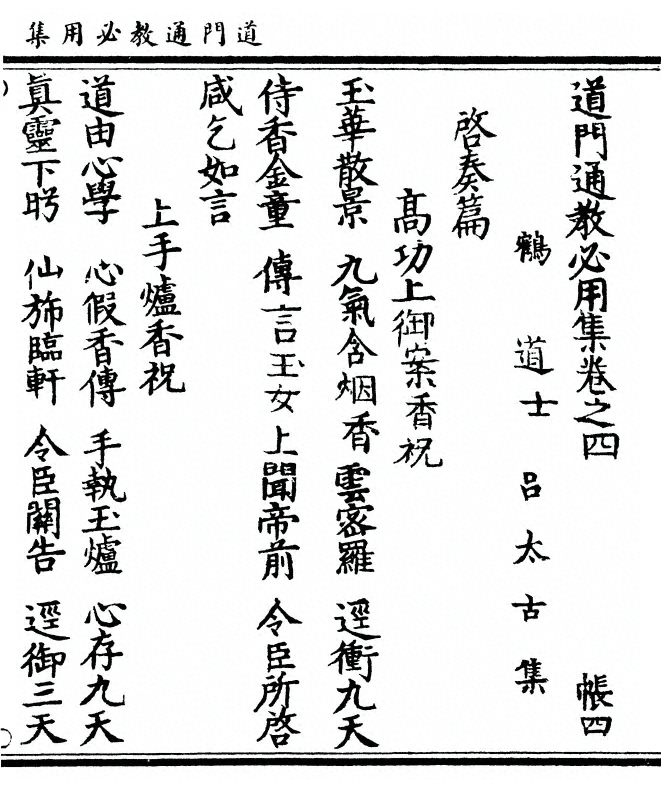 道門通教必用集
道門通教必用集卷之四 帳四
鶴 道士 呂太古 集
啓奏篇
髙功上御案香祝
玉華散景 九氣含烟 香雲宻羅 逕衝九天
侍香金童 傳言玉女 上聞帝前 令臣所啓
咸乞如言
上手爐香祝
道由心學 心假香傳 手執玉爐 心存九天
眞靈下盻 仙斾臨軒 令臣關告 逕御三天